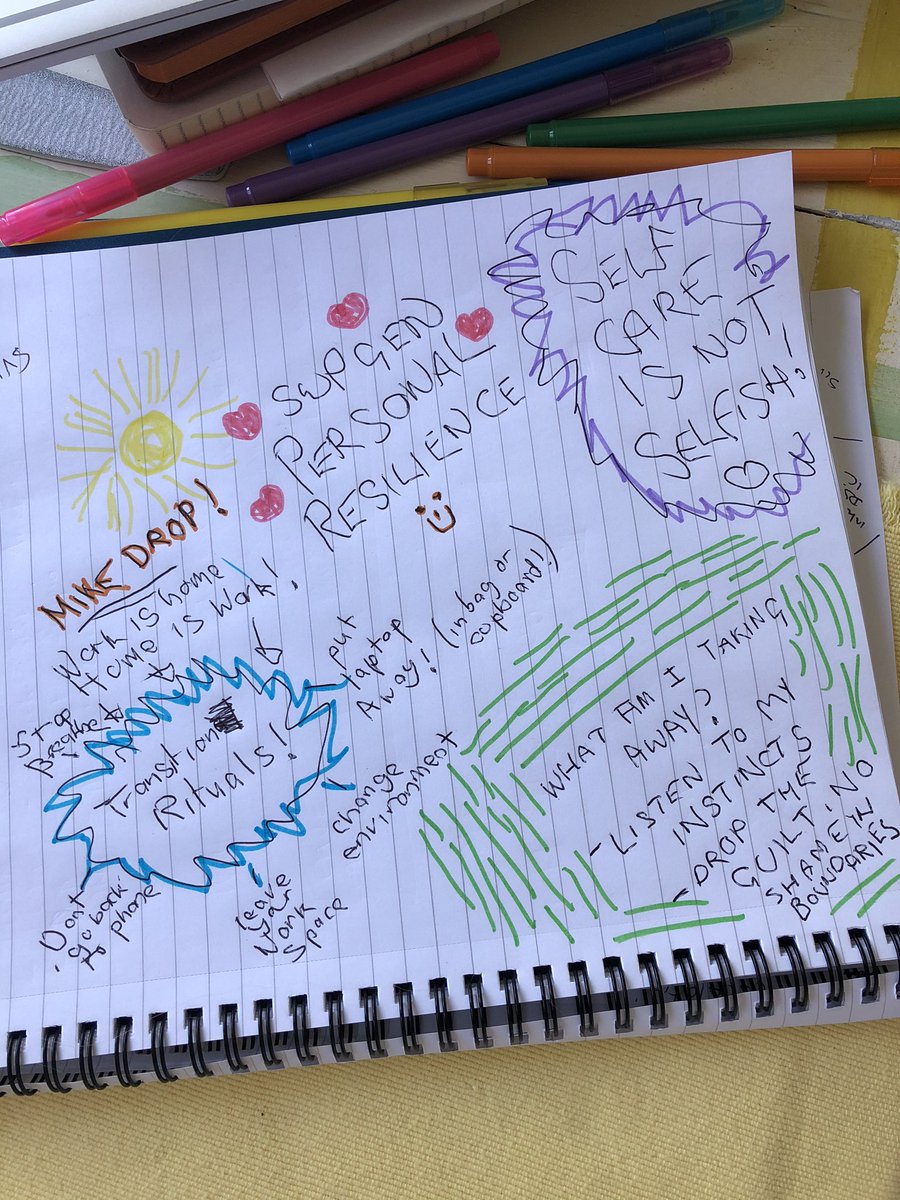 SWP GEN
PERSONAL
RESILIENCE
SELF
CARE
IS NOT
SELFISH!
MIKE DROP!
Work is home
Home is work!
Stop
Breathe
Transition
Rituals!
put
laptop
Away! (in bag or
copboard!)
change
environment
leave
your
work
space
Dont
go back
to phone
WHAT AM I TAKING
AWAY?
- LISTEN TO MY
INSTINCTS
- DROP THE
GUILT! NO
SHAME IN
BOUNDARIES